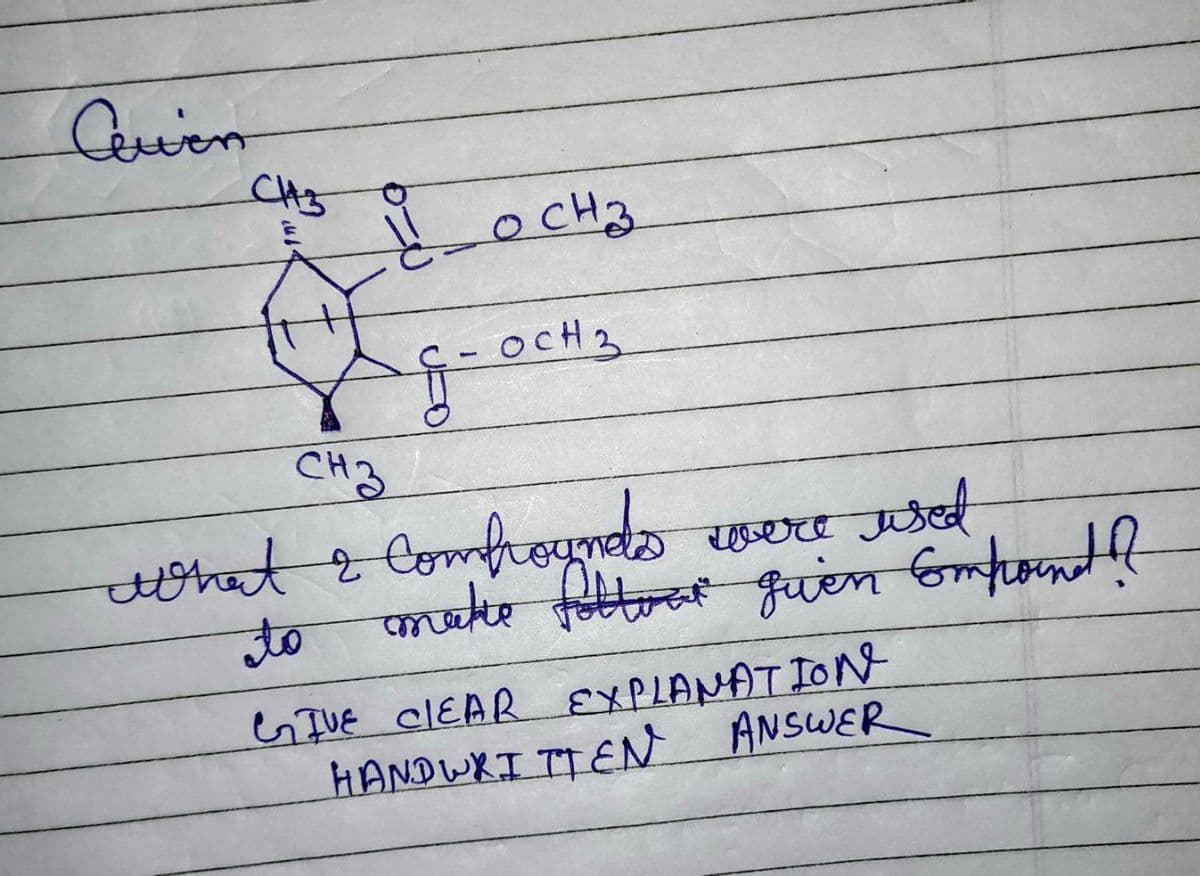 Given
CH3 O
C-OCH3
C-OCH3
O
CH3
what 2 Compounds were used
to make given Compound?
GIVE ClEAR EXPLANATION
HANDWRITTEN ANSWER